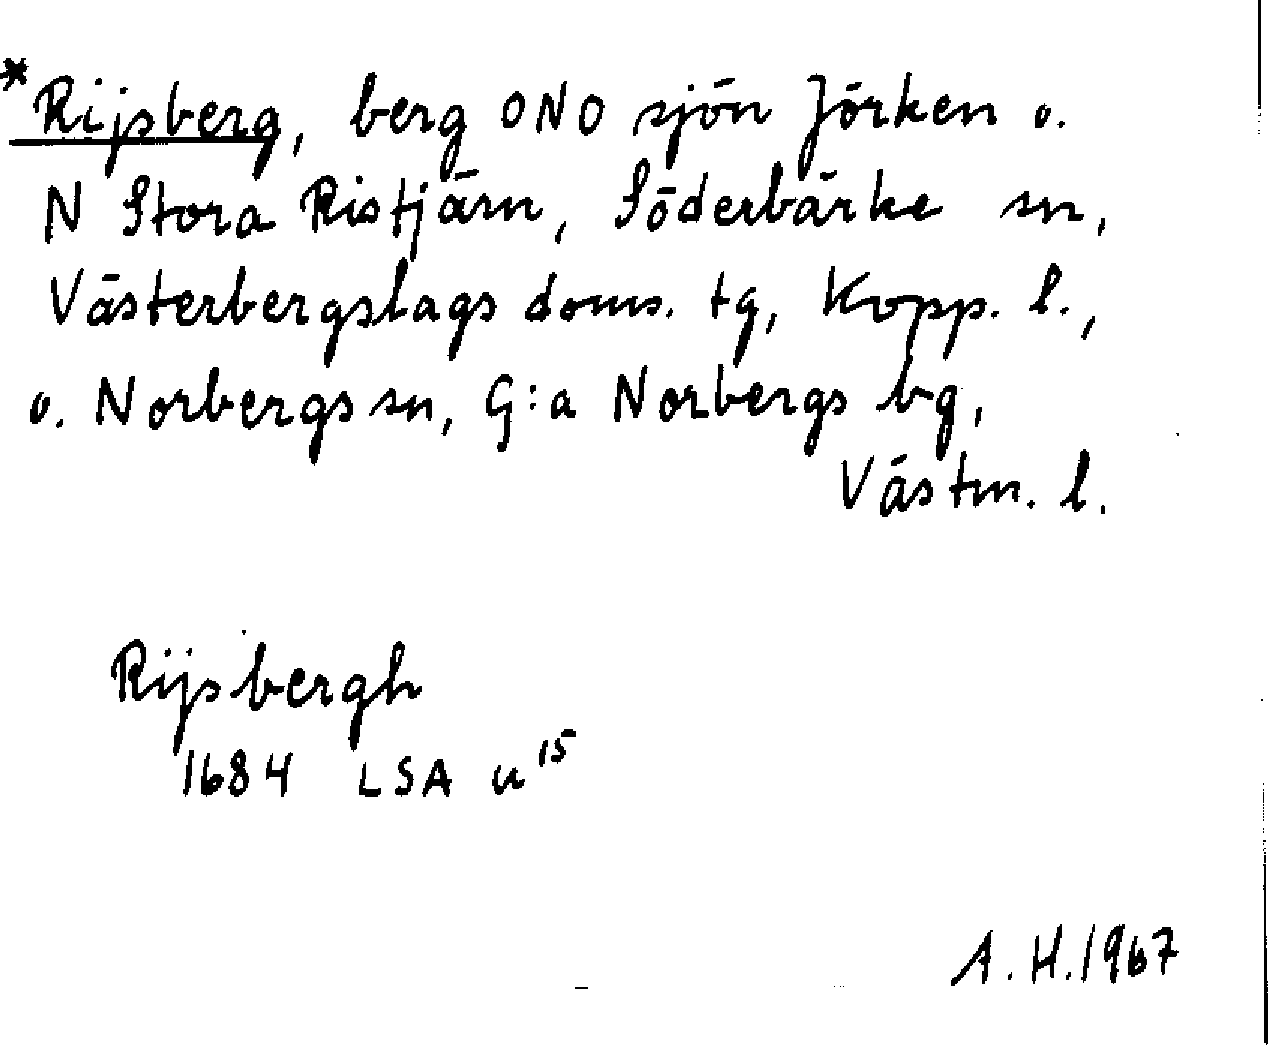 *Rijsberg, berg ONO sjön Jörken o.
N Stora Ristjärn, Söderbärke sn,
Västerbergslags doms. tg, Kopp. l.,
o. Norbergs sn, G:a Norbergs bg,
Västm. l.
Rijsbergh
1684 LSA u15
A. H. 1967